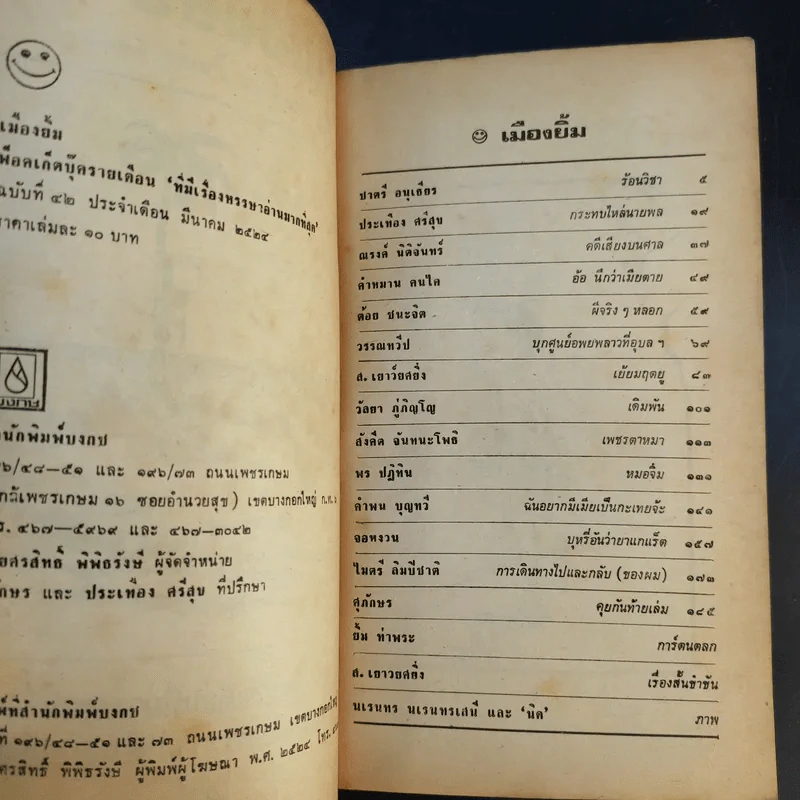 เมืองยิ้ม
พ็อคเก็ตบุ๊ครายเดือน 'ที่มีเรื่องหรรษาอ่านมากที่สุด'
ฉบับที่ ๔๒ ประจำเดือน มีนาคม ๒๕๒๔
ราคาเล่มละ ๑๐ บาท
บงกช
สำนักพิมพ์บงกช
๑๙๖/๔๘—๕๑ และ ๑๙๖/๗๓ ถนนเพชรเกษม
เพชรเกษม ๑๖ ซอยอำนวยสุข) เขตบางกอกใหญ่
โทร. ๔๖๗—๕๙๖๙ และ ๔๖๗—๓๐๔๒
ศรสิทธิ์ พิพิธรังษี ผู้จัดจำหน่าย
และ ประเทือง ศรีสุข ที่ปรึกษา
พิมพ์ที่สำนักพิมพ์บงกช
ที่ ๑๙๖/๔๘—๕๑ และ ๗๓ ถนนเพชรเกษม เขตบางกอกใหญ่
ศรสิทธิ์ พิพิธรังษี ผู้พิมพ์ผู้โฆษณา พ.ศ. ๒๕๒๔ โทร.
เมืองยิ้ม
ชาตรี อนุเธียร ร้อนวิชา ๕
ประเทือง ศรีสุข กระทบไหล่นายพล ๑๙
ณรงค์ นิติจันทร์ คดีเสียงบนศาล ๓๗
คำหมาน คนไค อ้อ นึกว่าเมียตาย ๔๙
ต้อย ชนะจิต ผีจริง ๆ หลอก ๕๙
วรรณทวีป บุกศูนย์อพยพลาวที่อุบล ฯ ๖๙
ส. เยาว์ยศยิ่ง เย้ยมฤตยู ๘๓
วัลยา ภู่ภิญโญ เดิมพัน ๑๐๑
สังคีต จันทนะโพธิ เพชรตาหมา ๑๑๓
พร ปฏิทิน หมอจิ๋ม ๑๓๑
คำพน บุญทวี ฉันอยากมีเมียเป็นกะเทยจ้ะ ๑๔๑
จอหงวน บุหรี่อันว่ายาแกแร็ต ๑๕๗
ไมตรี ลิมปิชาติ การเดินทางไปและกลับ (ของผม) ๑๗๓
ศุภักษร คุยกันท้ายเล่ม ๑๘๕
ยิ้ม ท่าพระ การ์ตูนตลก
ส. เยาวยศยิ่ง เรื่องสั้นขำขัน
นเรนทร นเรนทรเสนี และ 'นิด' ภาพ